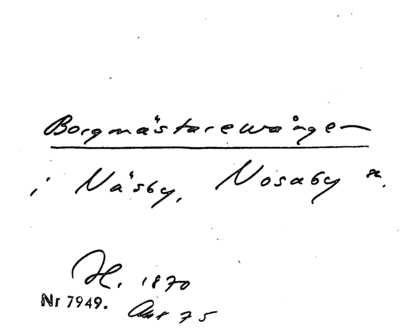 Borgmästarewången
i Näsby, Nosaby sn.
H. 1870
Nr 7949. Aut 75